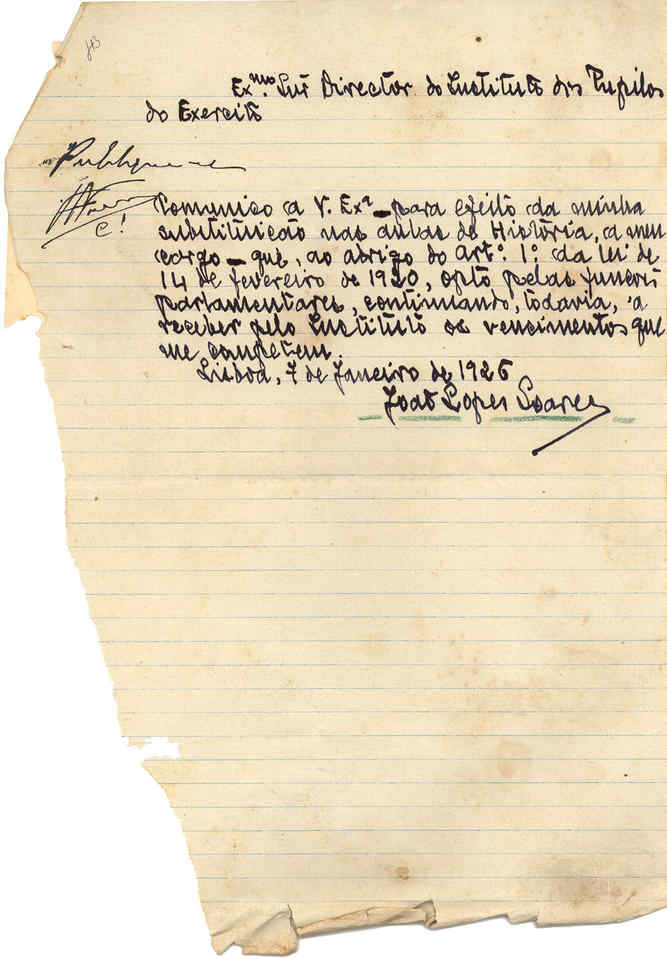 Exmo. Snr Director do Instituto dos Pupilos
do Exercito
Publique-se
Comunico a V. Exª - para efeito da minha
substituição nas aulas de História, a meu
cargo - que, ao abrigo do artº. 1º. da lei de
14 de fevereiro de 1920, opto pelas funções
parlamentares, continuando, todavia, a
receber pelo Instituto os vencimentos que
me competem.
Lisboa, 7 de Janeiro de 1926
João Lopes Soares